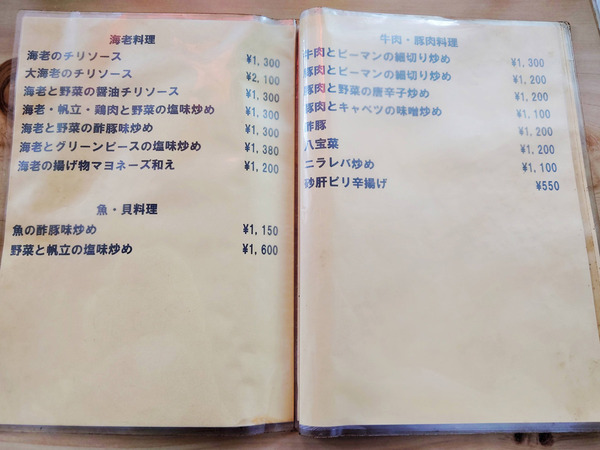 海老料理
海老のチリソース ¥1,300
大海老のチリソース ¥2,100
海老と野菜の醤油チリソース ¥1,300
海老・帆立・鶏肉と野菜の塩味炒め ¥1,300
海老と野菜の酢豚味炒め ¥1,300
海老とグリーンピースの塩味炒め ¥1,380
海老の揚げ物マヨネーズ和え ¥1,200
魚・貝料理
魚の酢豚味炒め ¥1,150
野菜と帆立の塩味炒め ¥1,600
牛肉・豚肉料理
牛肉とピーマンの細切り炒め ¥1,300
豚肉とピーマンの細切り炒め ¥1,200
豚肉と野菜の唐辛子炒め ¥1,200
豚肉とキャベツの味噌炒め ¥1,100
酢豚 ¥1,200
八宝菜 ¥1,200
ニラレバ炒め ¥1,100
砂肝ピリ辛揚げ ¥550